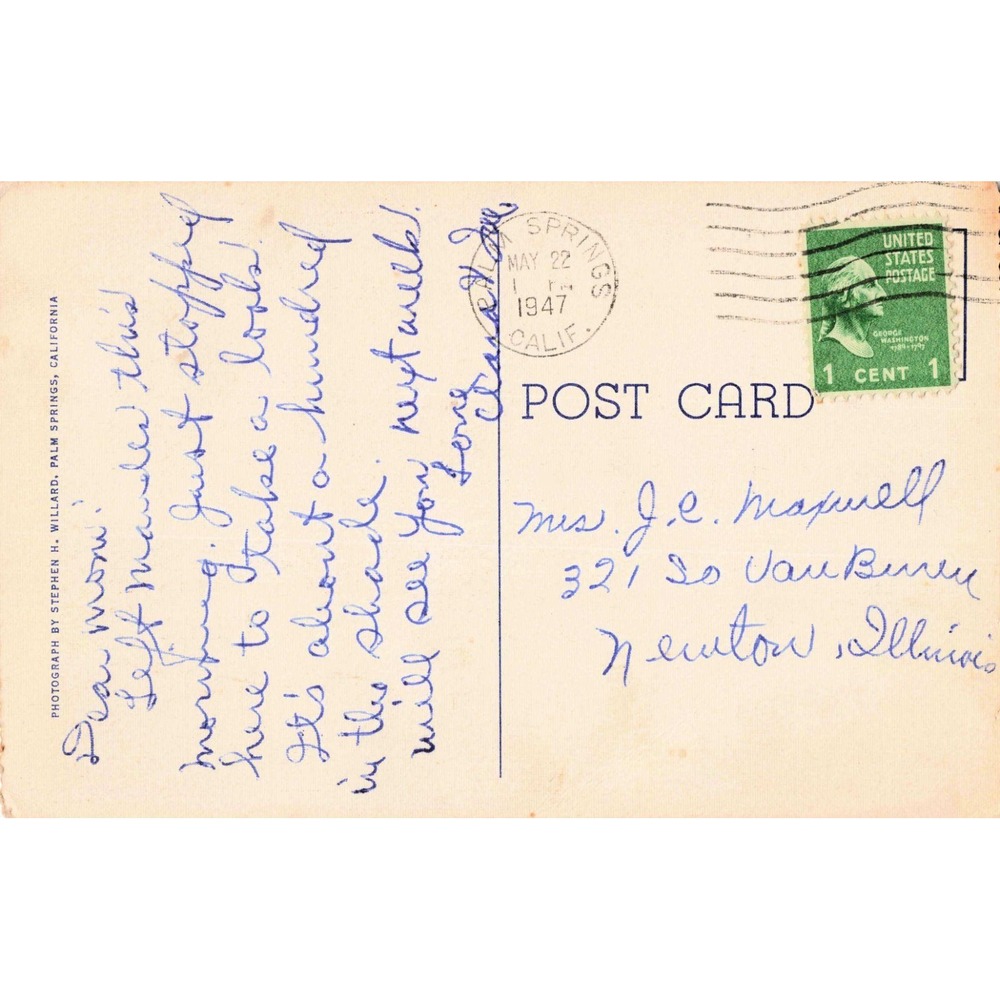 PHOTOGRAPH BY STEPHEN H. WILLARD, PALM SPRINGS, CALIFORNIA
Dear Mom:
Left this
morning. Just stopped
here to take a look.
It's about a hundred
in the shade.
will see you next week.
Love
PALM SPRINGS
MAY 22
1947
CALIF.
UNITED
STATES
POSTAGE
GEORGE
WASHINGTON
1789-1797
1 CENT 1
POST CARD
Mrs. J.C. Maxwell
321 So Van Buren
Newton, Illinois